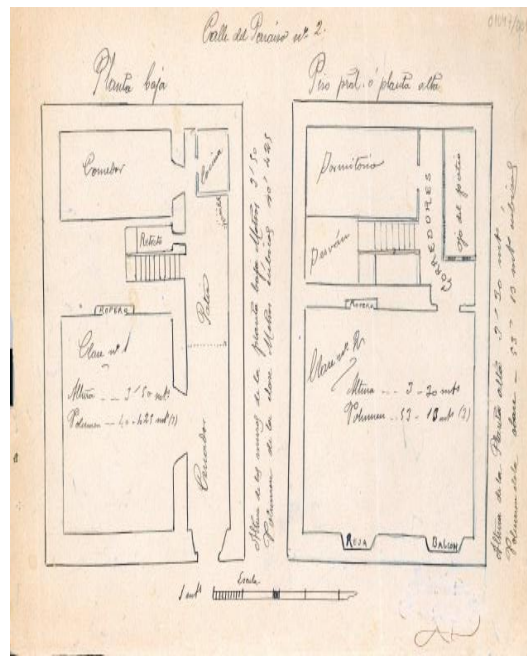 Calle del Paraiso nº 2.
Planta baja
Piso pral. ó planta alta
Comedor
Cocina
Retrete
Patio
ROPERO
Clase nº 1
Altura - - 3'50 mts
Volumen - 40-425 mts (3)
Cenador
Altura de los muros de la planta baja Metros 3'50
Volumen de la clase Metros cúbicos 40'425
Dormitorio
Desván
CORREDORES
ojo del patio
Ropero
Clase nº
Altura - - - 3-20 mts
Volumen - - 53-13 mts (3)
REJA
BALCON
Altura de la Planta alta 3'20 mts
Volumen de la clase - 53-13 mts cúbicos
Escala
1 mts